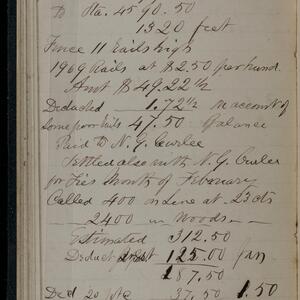 To Sta. 45 90.50
1320 feet
Fence 11 Rails high
1969 Rails at $2.50 per hund.
Amt $49.22 1/2
Deducted 1.72 1/2 on account of
Some poor rails 47.50 Balance
Paid to N. G.
Settled also with N. G.
for Ties Month of February
Called 400 on Line at 23 cts
2400 in Woods
Estimated 312.50
Deduct 125.00
187.50
Ded 20 37.50 1.50